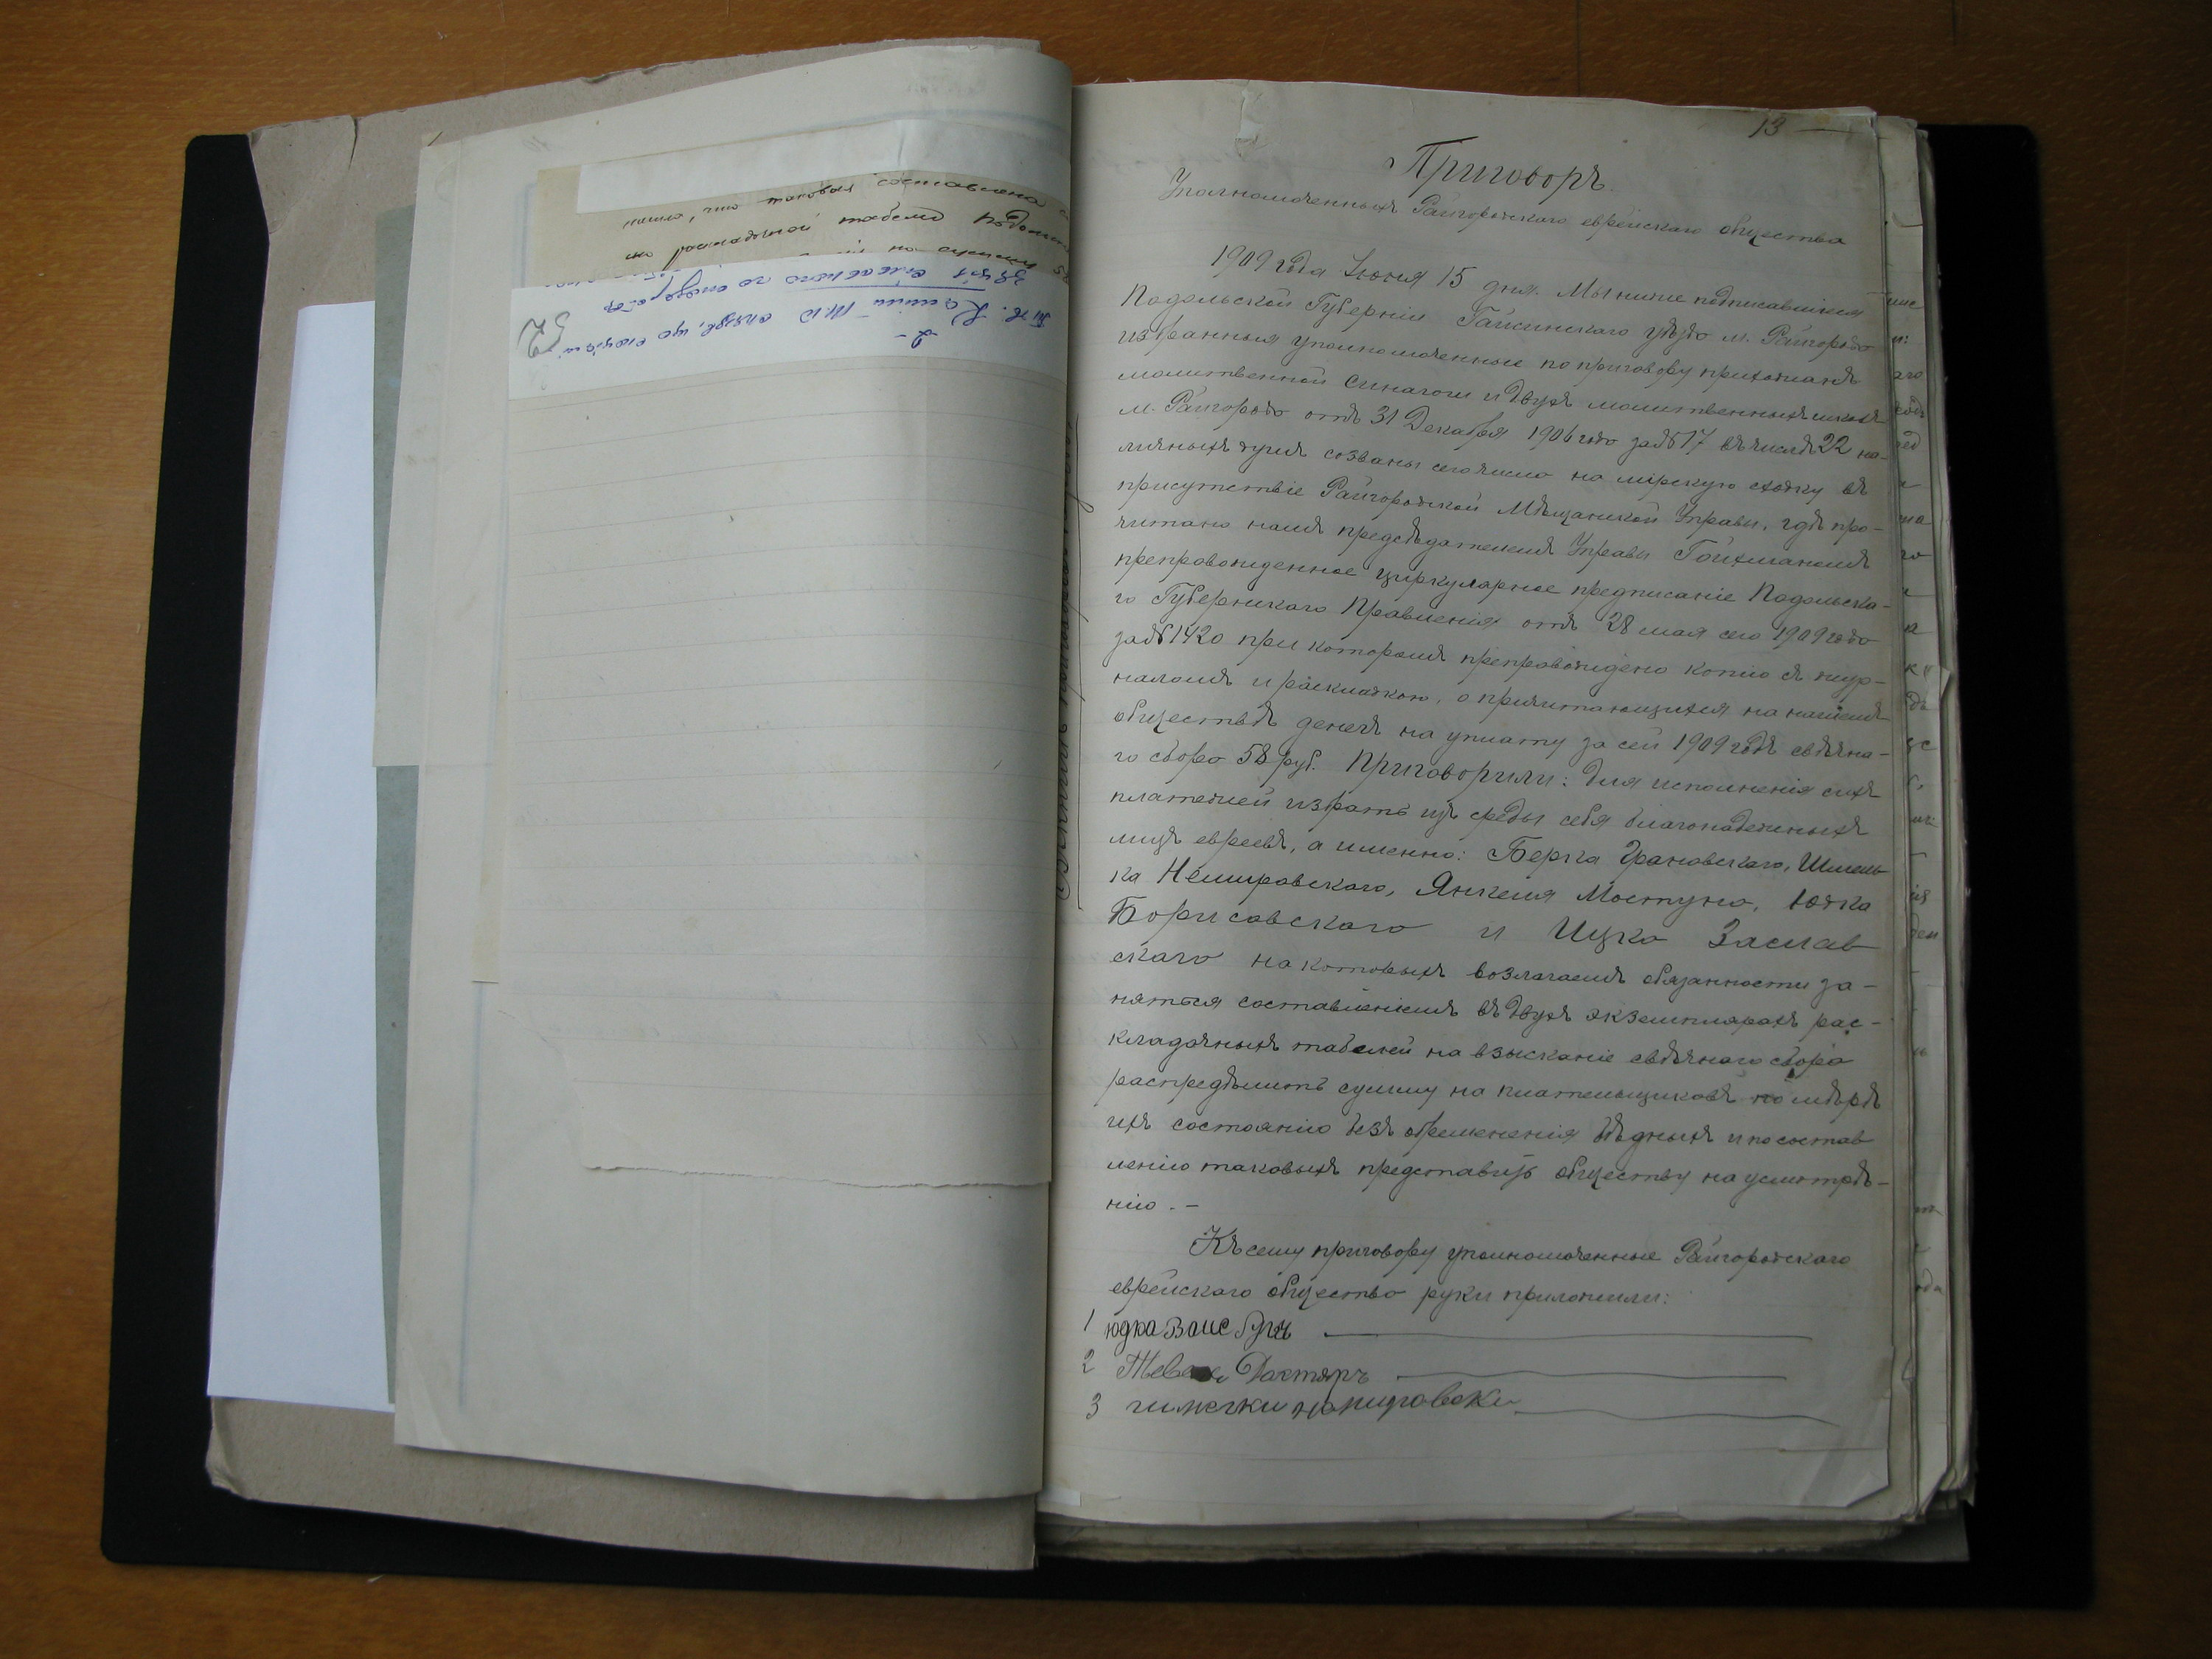 13
Приговоръ
Уполномоченныхъ Райгородскаго еврейскаго общества
1909 года Іюня 15 дня. Мы ниже подписавшіеся
Подольской Губерніи Гайсинскаго уѣзда м. Райгорода
избранныя уполномоченные по приговору прихожанъ
молитвенной синагоги и двухъ молитвенныхъ школъ
м. Райгорода отъ 31 Декабря 1906 года за № 17 въ числѣ 22 на-
личныхъ душъ созваны сего числа на мірскую сходку въ
присутствіе Райгородской Мѣщанской Управы, гдѣ про-
читано намъ предсѣдателемъ Управы Гойхманомъ
препровожденное циркулярное предписаніе Подольска-
го Губернскаго Правленія отъ 28 мая сего 1909 года
за № 1420 при которомъ препровождено копію съ жур-
наломъ и раскладкою, о причитающихся на нашемъ
обществѣ денегъ на уплату за сей 1909 годъ свѣчна-
го сбора 58 руб. Приговорили: Для исполненія сихъ
платежей избрать изъ среды себя благонадежныхъ
лицъ евреевъ, а именно: Берка Грановскаго, Шмель-
ка Немировскаго, Янкеля Мостуна, Юдка
Борисовскаго и Ицка Заслав
скаго на которыхъ возлагаемъ обязанности за-
няться составленіемъ въ двухъ экземплярахъ рас-
кладочныхъ табелей на взысканіе свѣчнаго сбора
распредѣлить сумму на плательщиковъ по мѣрѣ
ихъ состоянію безъ обремененія бѣдныхъ и по состав
ленію таковыхъ представить обществу на усмотрѣ-
нію. –
Къ сему приговору уполномоченные Райгородскаго
еврейскаго общества руки приложили:
1 Юдка Ваисбугъ
2 Дохтяръ
3
что таковая составлена
раскладочной табели Подольск
на сумму 58
52